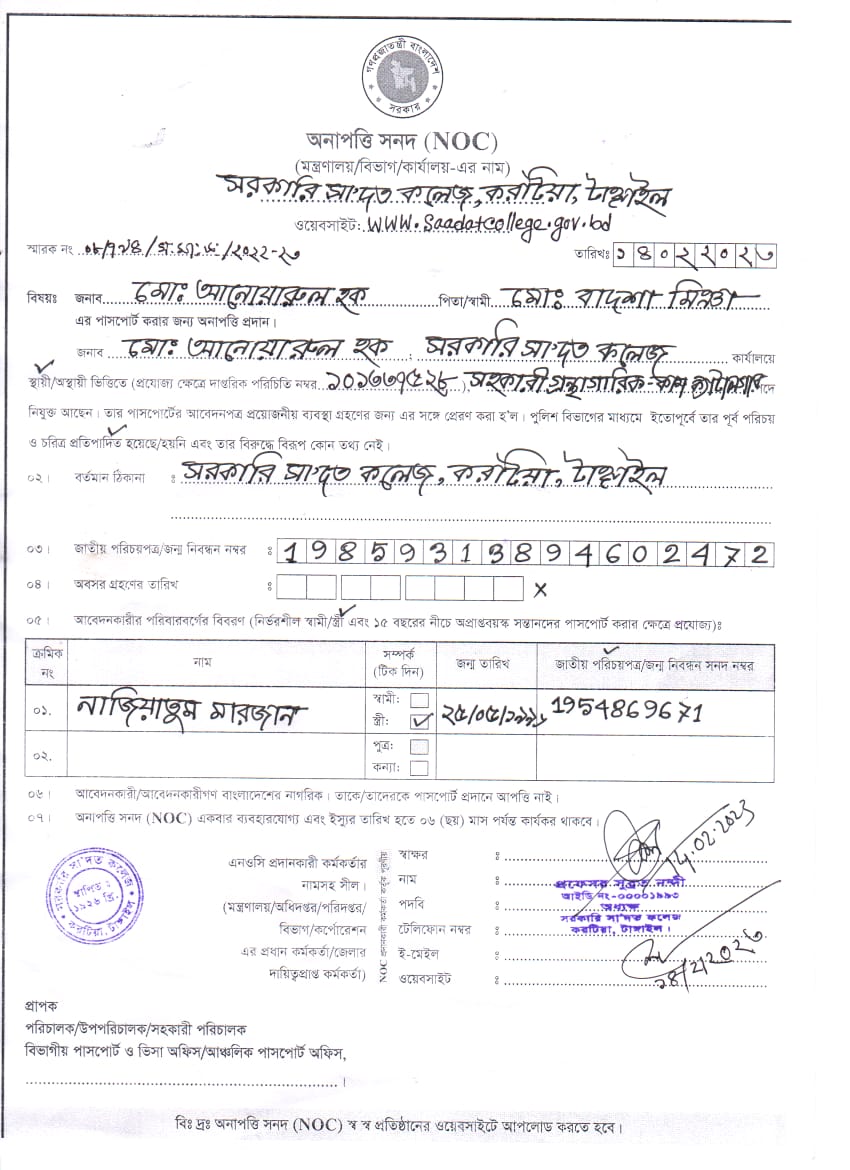 গণপ্রজাতন্ত্রী বাংলাদেশ
সরকার
অনাপত্তি সনদ (NOC)
(মন্ত্রণালয়/বিভাগ/কার্যালয়-এর নাম)
সরকারি সা'দত কলেজ, করটিয়া, টাঙ্গাইল
ওয়েবসাইট: www.Saadatcollege.gov.bd
স্মারক নং /২০২২-২৩ তারিখঃ ১৪০২২০২৩
বিষয়ঃ জনাব মোঃ আনোয়ারুল হক পিতা/স্বামী মোঃ বাদশা মিঞা
এর পাসপোর্ট করার জন্য অনাপত্তি প্রদান।
জনাব মোঃ আনোয়ারুল হক, সরকারি সা'দত কলেজ কার্যালয়ে
স্থায়ী/অস্থায়ী ভিত্তিতে (প্রযোজ্য ক্ষেত্রে দাপ্তরিক পরিচিতি নম্বর ), সহকারী গ্রন্থাগারিক-কাম পদে
নিযুক্ত আছেন। তার পাসপোর্টের আবেদনপত্র প্রয়োজনীয় ব্যবস্থা গ্রহণের জন্য এর সঙ্গে প্রেরণ করা হ'ল। পুলিশ বিভাগের মাধ্যমে ইতোপূর্বে তার পূর্ব পরিচয়
ও চরিত্র প্রতিপাদিত হয়েছে/হয়নি এবং তার বিরুদ্ধে বিরূপ কোন তথ্য নেই।
০২। বর্তমান ঠিকানা ঃ সরকারি সা'দত কলেজ, করটিয়া, টাঙ্গাইল
০৩। জাতীয় পরিচয়পত্র/জন্ম নিবন্ধন নম্বর ঃ 19859313894602472
০৪। অবসর গ্রহণের তারিখ ঃ x
০৫। আবেদনকারীর পরিবারবর্গের বিবরণ (নির্ভরশীল স্বামী/স্ত্রী এবং ১৫ বছরের নীচে অপ্রাপ্তবয়স্ক সন্তানদের পাসপোর্ট করার ক্ষেত্রে প্রযোজ্য)ঃ
ক্রমিক নং নাম সম্পর্ক (টিক দিন) জন্ম তারিখ জাতীয় পরিচয়পত্র/জন্ম নিবন্ধন সনদ নম্বর
০১. নাজিয়াতুম মারজান স্বামী: স্ত্রী: ✓ 1954869671
০২. পুত্র: কন্যা:
০৬। আবেদনকারী/আবেদনকারীগণ বাংলাদেশের নাগরিক। তাকে/তাদেরকে পাসপোর্ট প্রদানে আপত্তি নাই।
০৭। অনাপত্তি সনদ (NOC) একবার ব্যবহারযোগ্য এবং ইস্যুর তারিখ হতে ০৬ (ছয়) মাস পর্যন্ত কার্যকর থাকবে।
সরকারি সা'দত কলেজ
স্থাপিত : ১৯২৬ খ্রি.
করটিয়া, টাঙ্গাইল
এনওসি প্রদানকারী কর্মকর্তার
নামসহ সীল।
(মন্ত্রণালয়/অধিদপ্তর/পরিদপ্তর/
বিভাগ/কর্পোরেশন
এর প্রধান কর্মকর্তা/জেলার
দায়িত্বপ্রাপ্ত কর্মকর্তা)
NOC প্রদানকারী কর্মকর্তা কর্তৃক পূরণীয়
স্বাক্ষর ঃ 14.02.2023
নাম ঃ প্রফেসর সুব্রত নন্দী
আইডি নং-০০০০১৯৯৩
পদবি ঃ অধ্যক্ষ
সরকারি সা'দত কলেজ
টেলিফোন নম্বর ঃ করটিয়া, টাঙ্গাইল।
ই-মেইল ঃ
ওয়েবসাইট ঃ ১৪/২/২০২৩
প্রাপক
পরিচালক/উপপরিচালক/সহকারী পরিচালক
বিভাগীয় পাসপোর্ট ও ভিসা অফিস/আঞ্চলিক পাসপোর্ট অফিস,
।
বিঃ দ্রঃ অনাপত্তি সনদ (NOC) স্ব স্ব প্রতিষ্ঠানের ওয়েবসাইটে আপলোড করতে হবে।